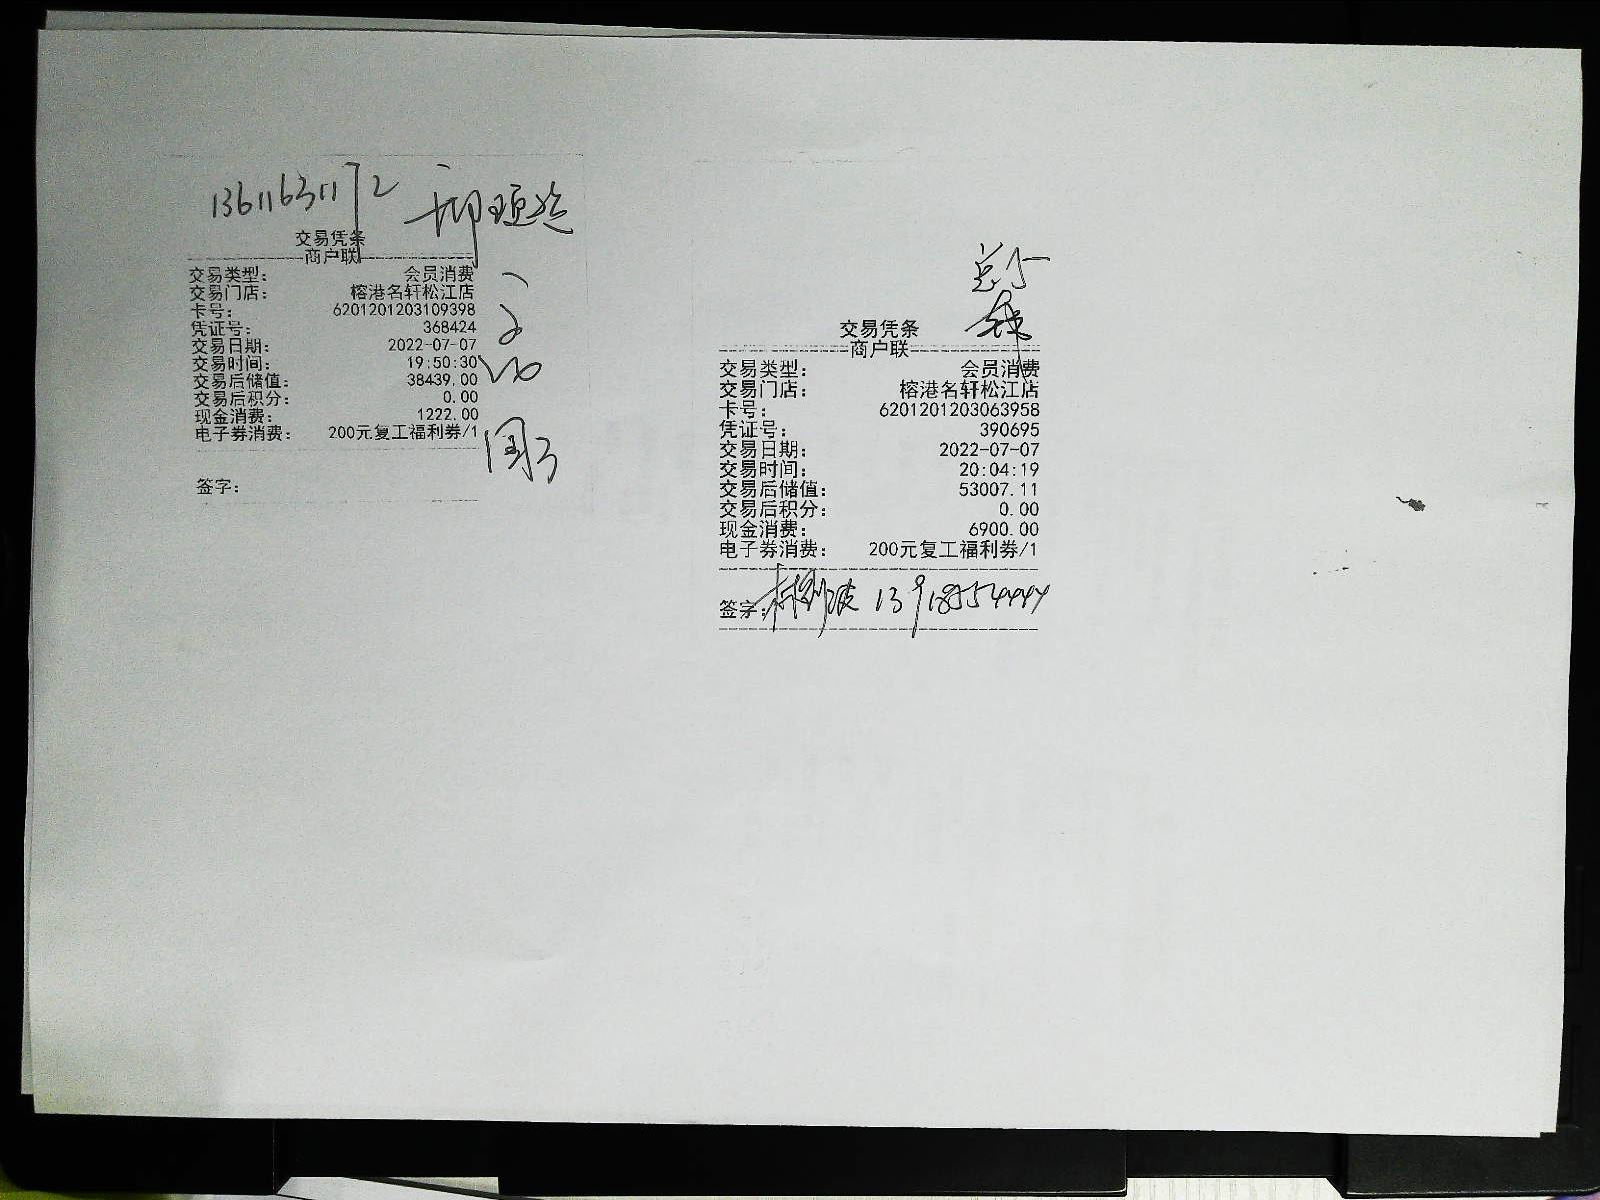 13611631172
交易凭条
商户联
交易类型： 会员消费
交易门店： 榕港名轩松江店
卡号： 6201201203109398
凭证号： 368424
交易日期： 2022-07-07
交易时间： 19:50:30
交易后储值： 38439.00
交易后积分： 0.00
现金消费： 1222.00
电子券消费： 200元复工福利券/1
签字：
交易凭条
商户联
交易类型： 会员消费
交易门店： 榕港名轩松江店
卡号： 6201201203063958
凭证号： 390695
交易日期： 2022-07-07
交易时间： 20:04:19
交易后储值： 53007.11
交易后积分： 0.00
现金消费： 6900.00
电子券消费： 200元复工福利券/1
签字：